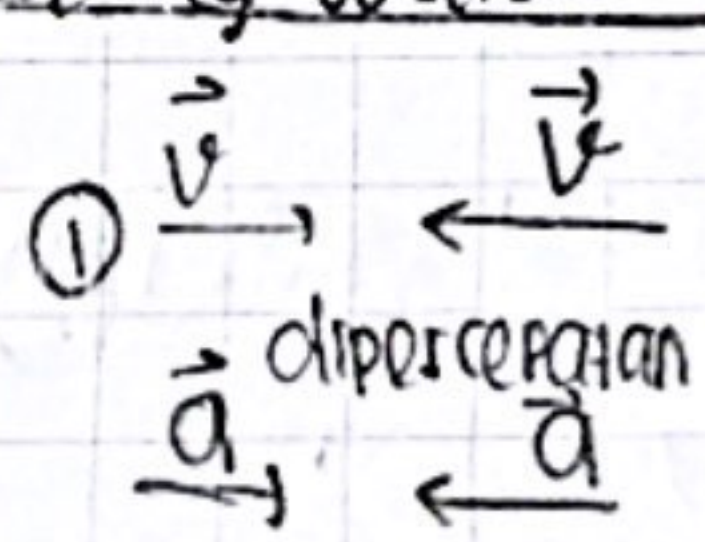 ① v⃗ → ← v⃗
dipercepatan
a⃗ → ← a⃗